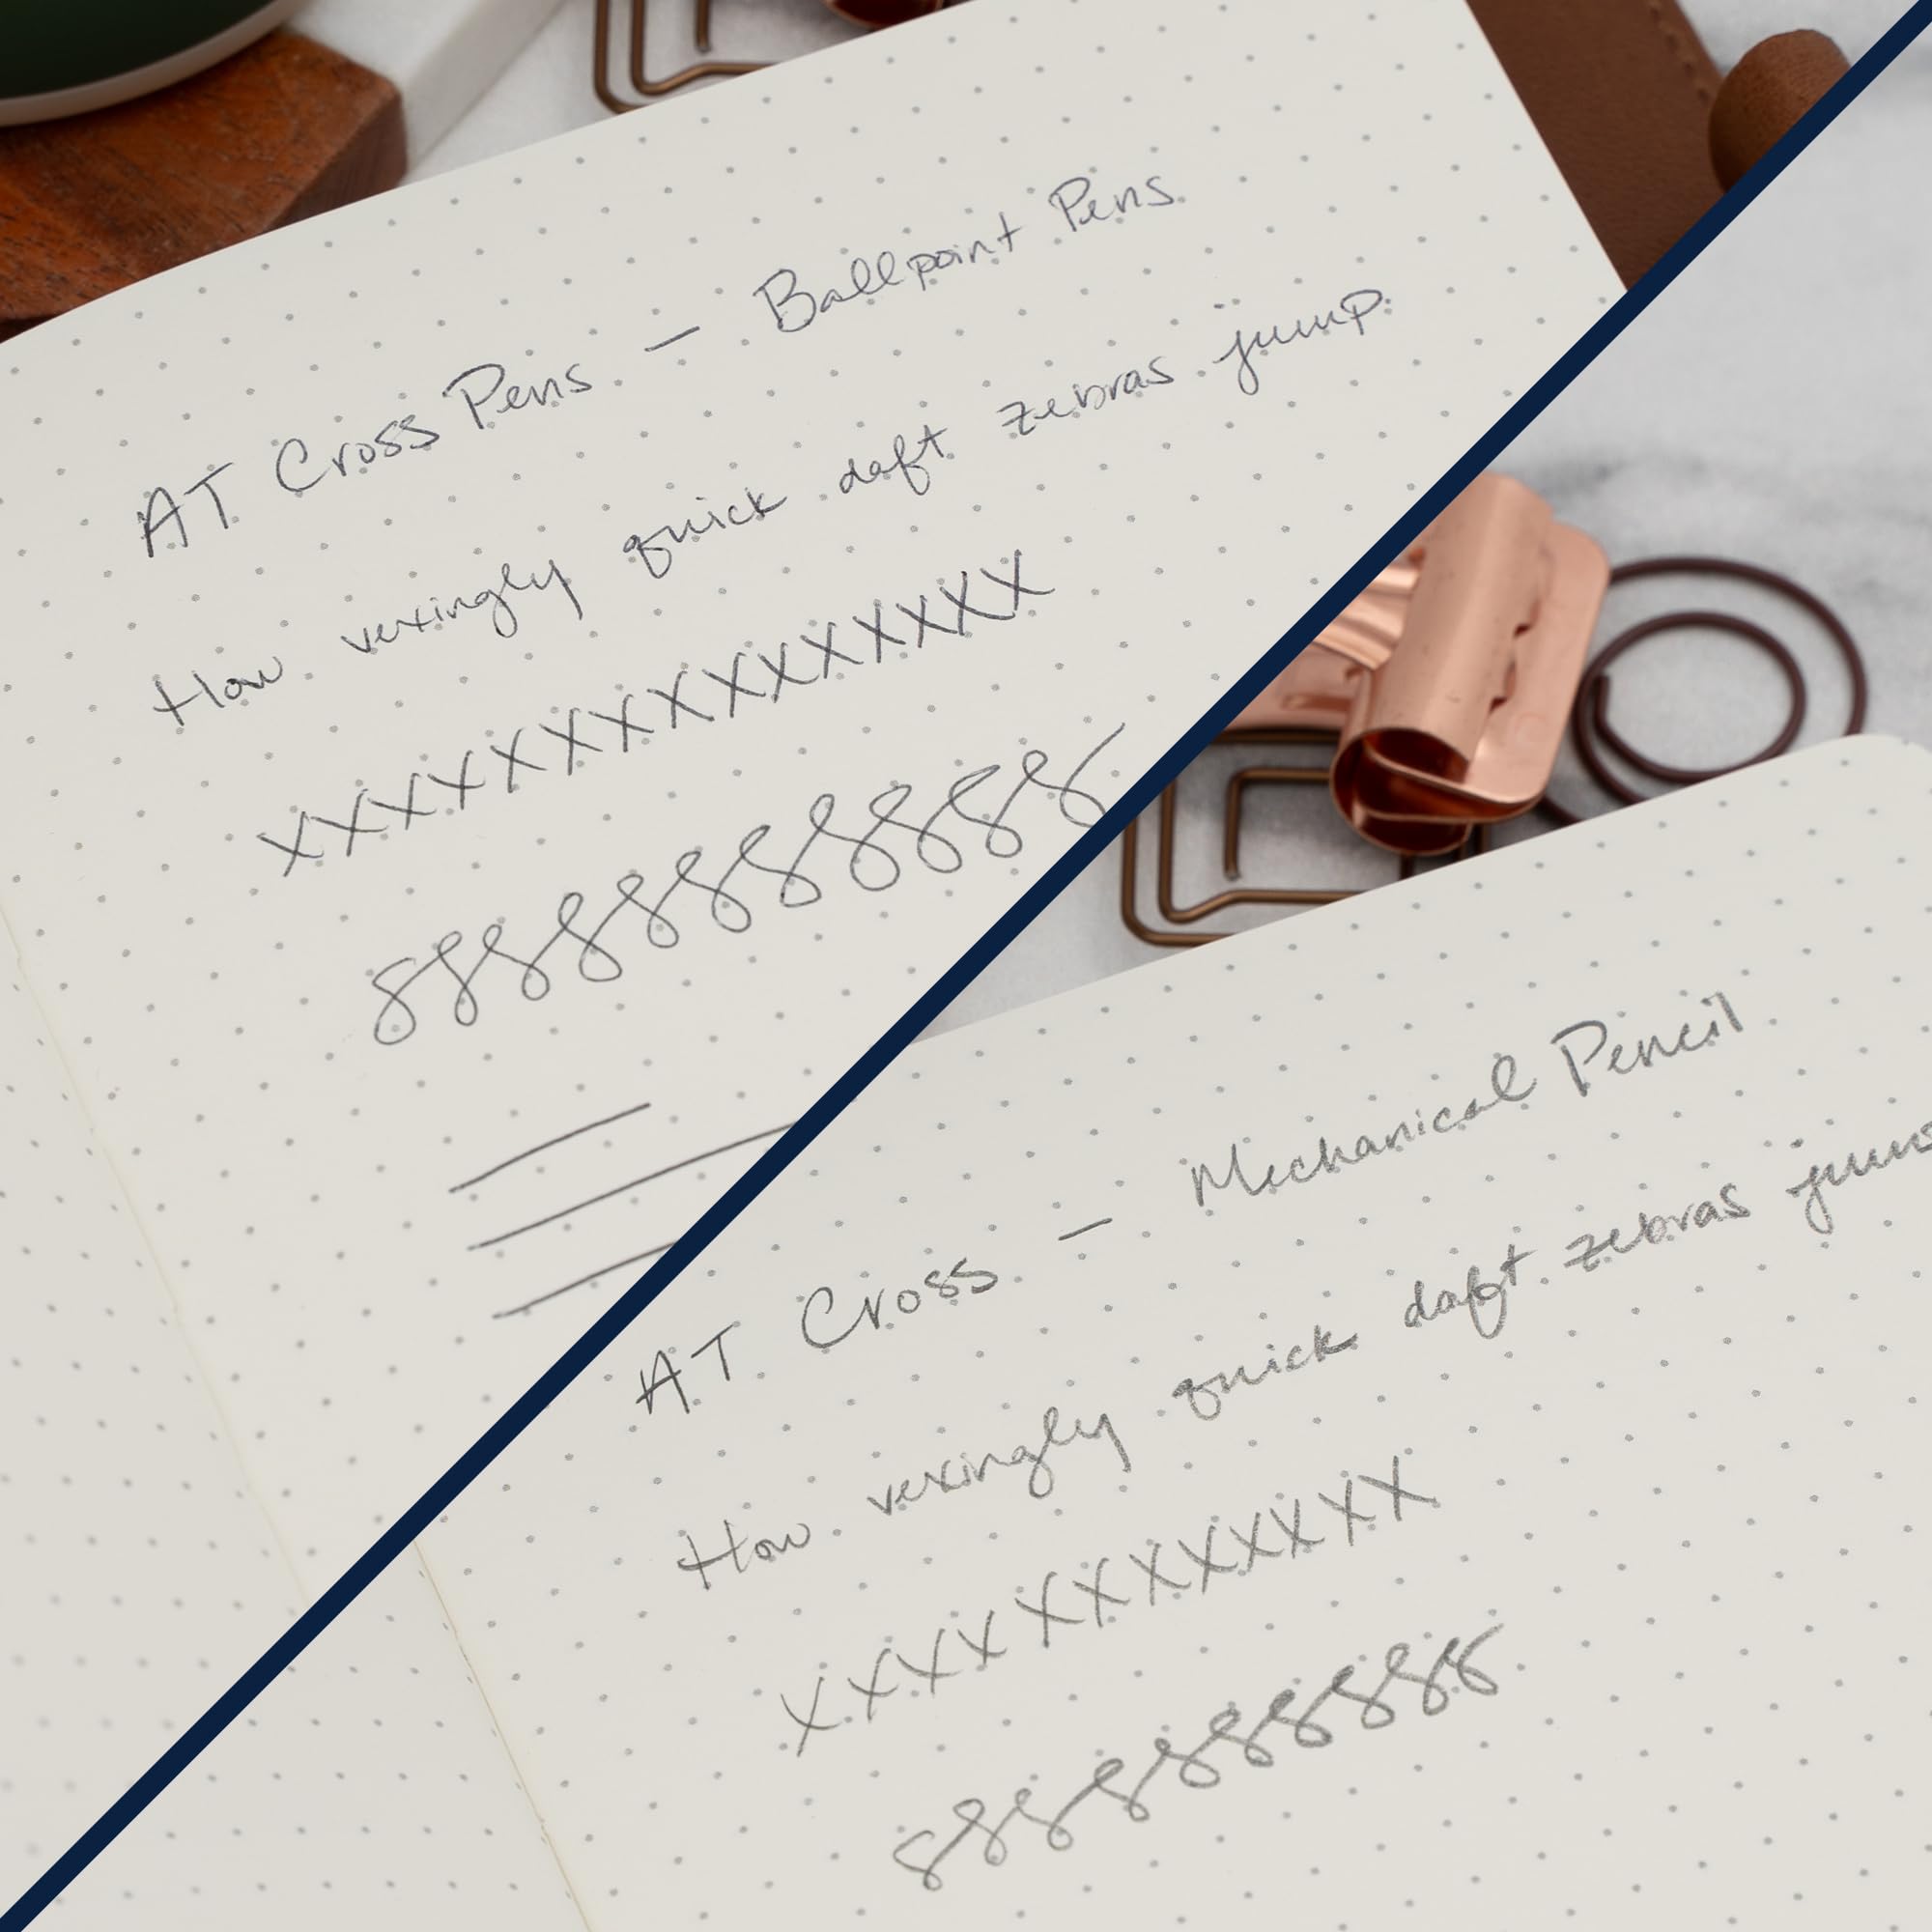 AT Cross Pens — Ballpoint Pens
How vexingly quick daft zebras jump.
XXXXXXXXXXXXXXX
8888888888
AT Cross — Mechanical Pencil
How vexingly quick daft zebras jum
XXXXXXXXXXXX
888888888